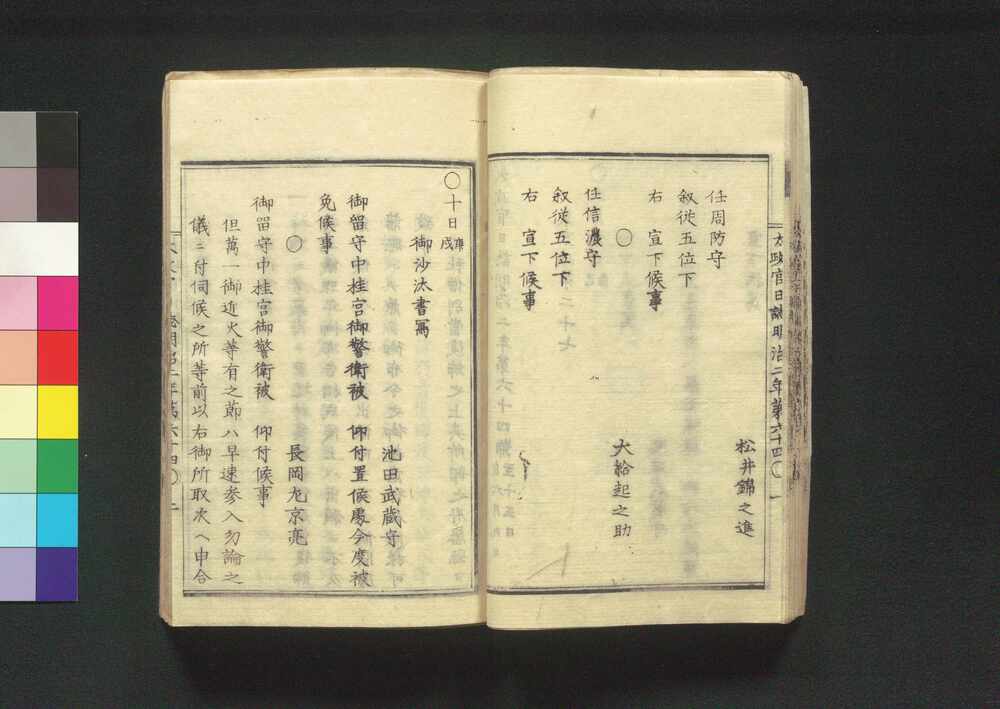 太政官日誌明治二年第六十四〇 一
松井錦之進
任周防守
叙從五位下
右 宣下候事
〇
大給起之助
任信濃守
叙從五位下
右 宣下候事
〇十日庚戌
御沙汰書寫
池田武藏守
御留守中桂宮御警衛被 仰付置候處今度被
免候事
〇
長岡左京亮
御留守中桂宮御警衛被 仰付候事
但萬一御近火等有之節ハ早速參入勿論之
儀ニ付伺候之所等前以右御所取次ヘ申合
明治二年第六十四〇 二